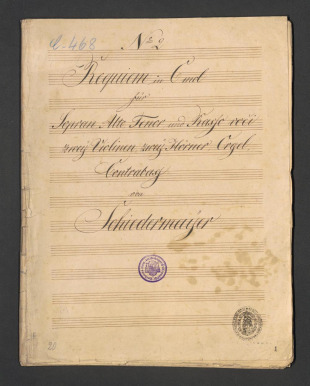 C. 468
No 2
Requiem in C mol
für
Sopran Alto Tenor und Basso voci
zwey Violinen zwey Hörner Orgel
Contrabaß
von
Schiedermayer
20
1